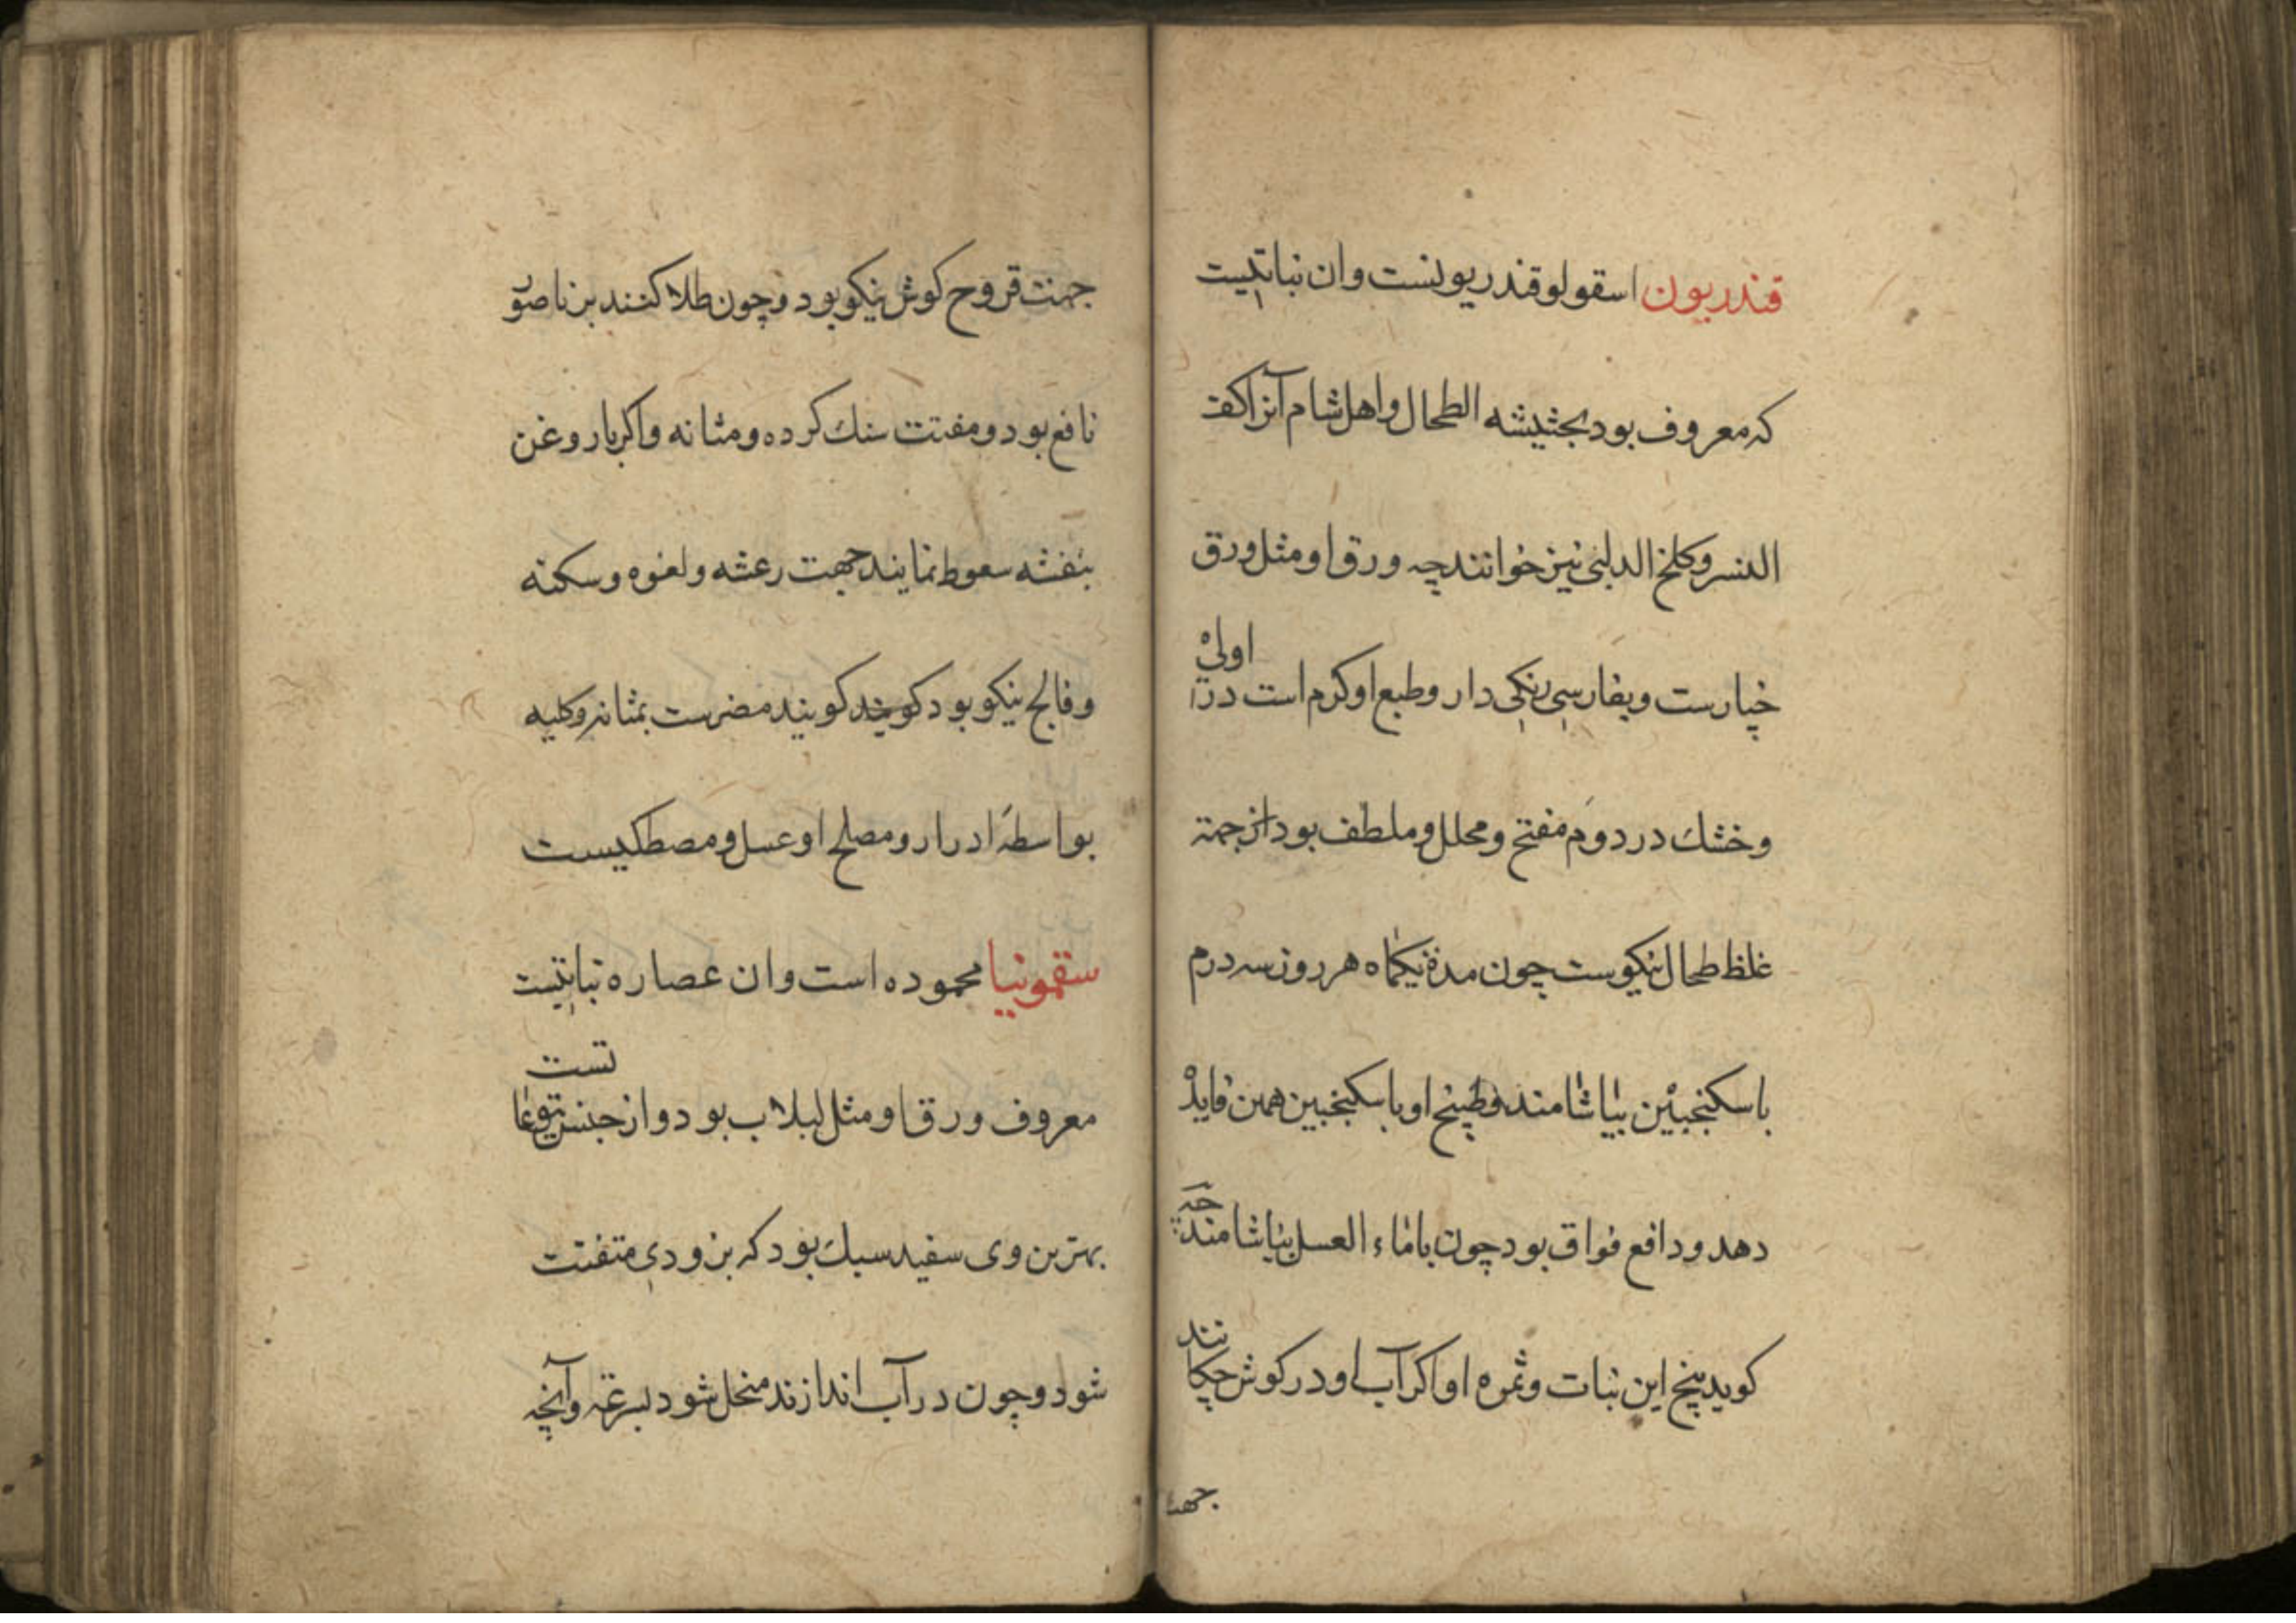 قندریون اسقولوقندریونست وان نباتیست
که معروف بود بجثیشه الطحال واهل شام آنرا کف
النسر وکلخ الدلبی نیز خوانند چه ورق او مثل ورق
خیارست وبفارسی زنکی دار وطبع او کرم است در اولی
وخشك در دوم مفتح ومحلل وملطف بود از جهة
غلظ طحال نیکوست چون مدة یکماه هر روز سه درم
با سکنجبین بیاشامند وطبیخ او با سکنجبین همین فایده
دهد ودافع فواق بود چون با ماء العسل بیاشامند
کوید بیخ این نبات وثمره او اکر آب او در کوش چکانند
جهت
جهت قروح کوش نیکو بود وچون طلا کنند بر ناصور
نافع بود ومفتت سنك کرده ومثانه واکر بار وغن
بنفشه سعوط نمایند جهت رعشه ولقوه وسکته
وفالج نیکو بود کویند مضرست بمثانه وکلیه
بواسطۀ ادرار ومصلح او عسل ومصطکیست
سقمونیا محموده است وان عصاره نباتیست
معروف ورق او مثل لبلاب بود واز جنس یتوعاتست
بهترین وی سفید سبك بود که بزودی متفتت
شود وچون در آب اندازند منحل شود بسرعة وآنچه